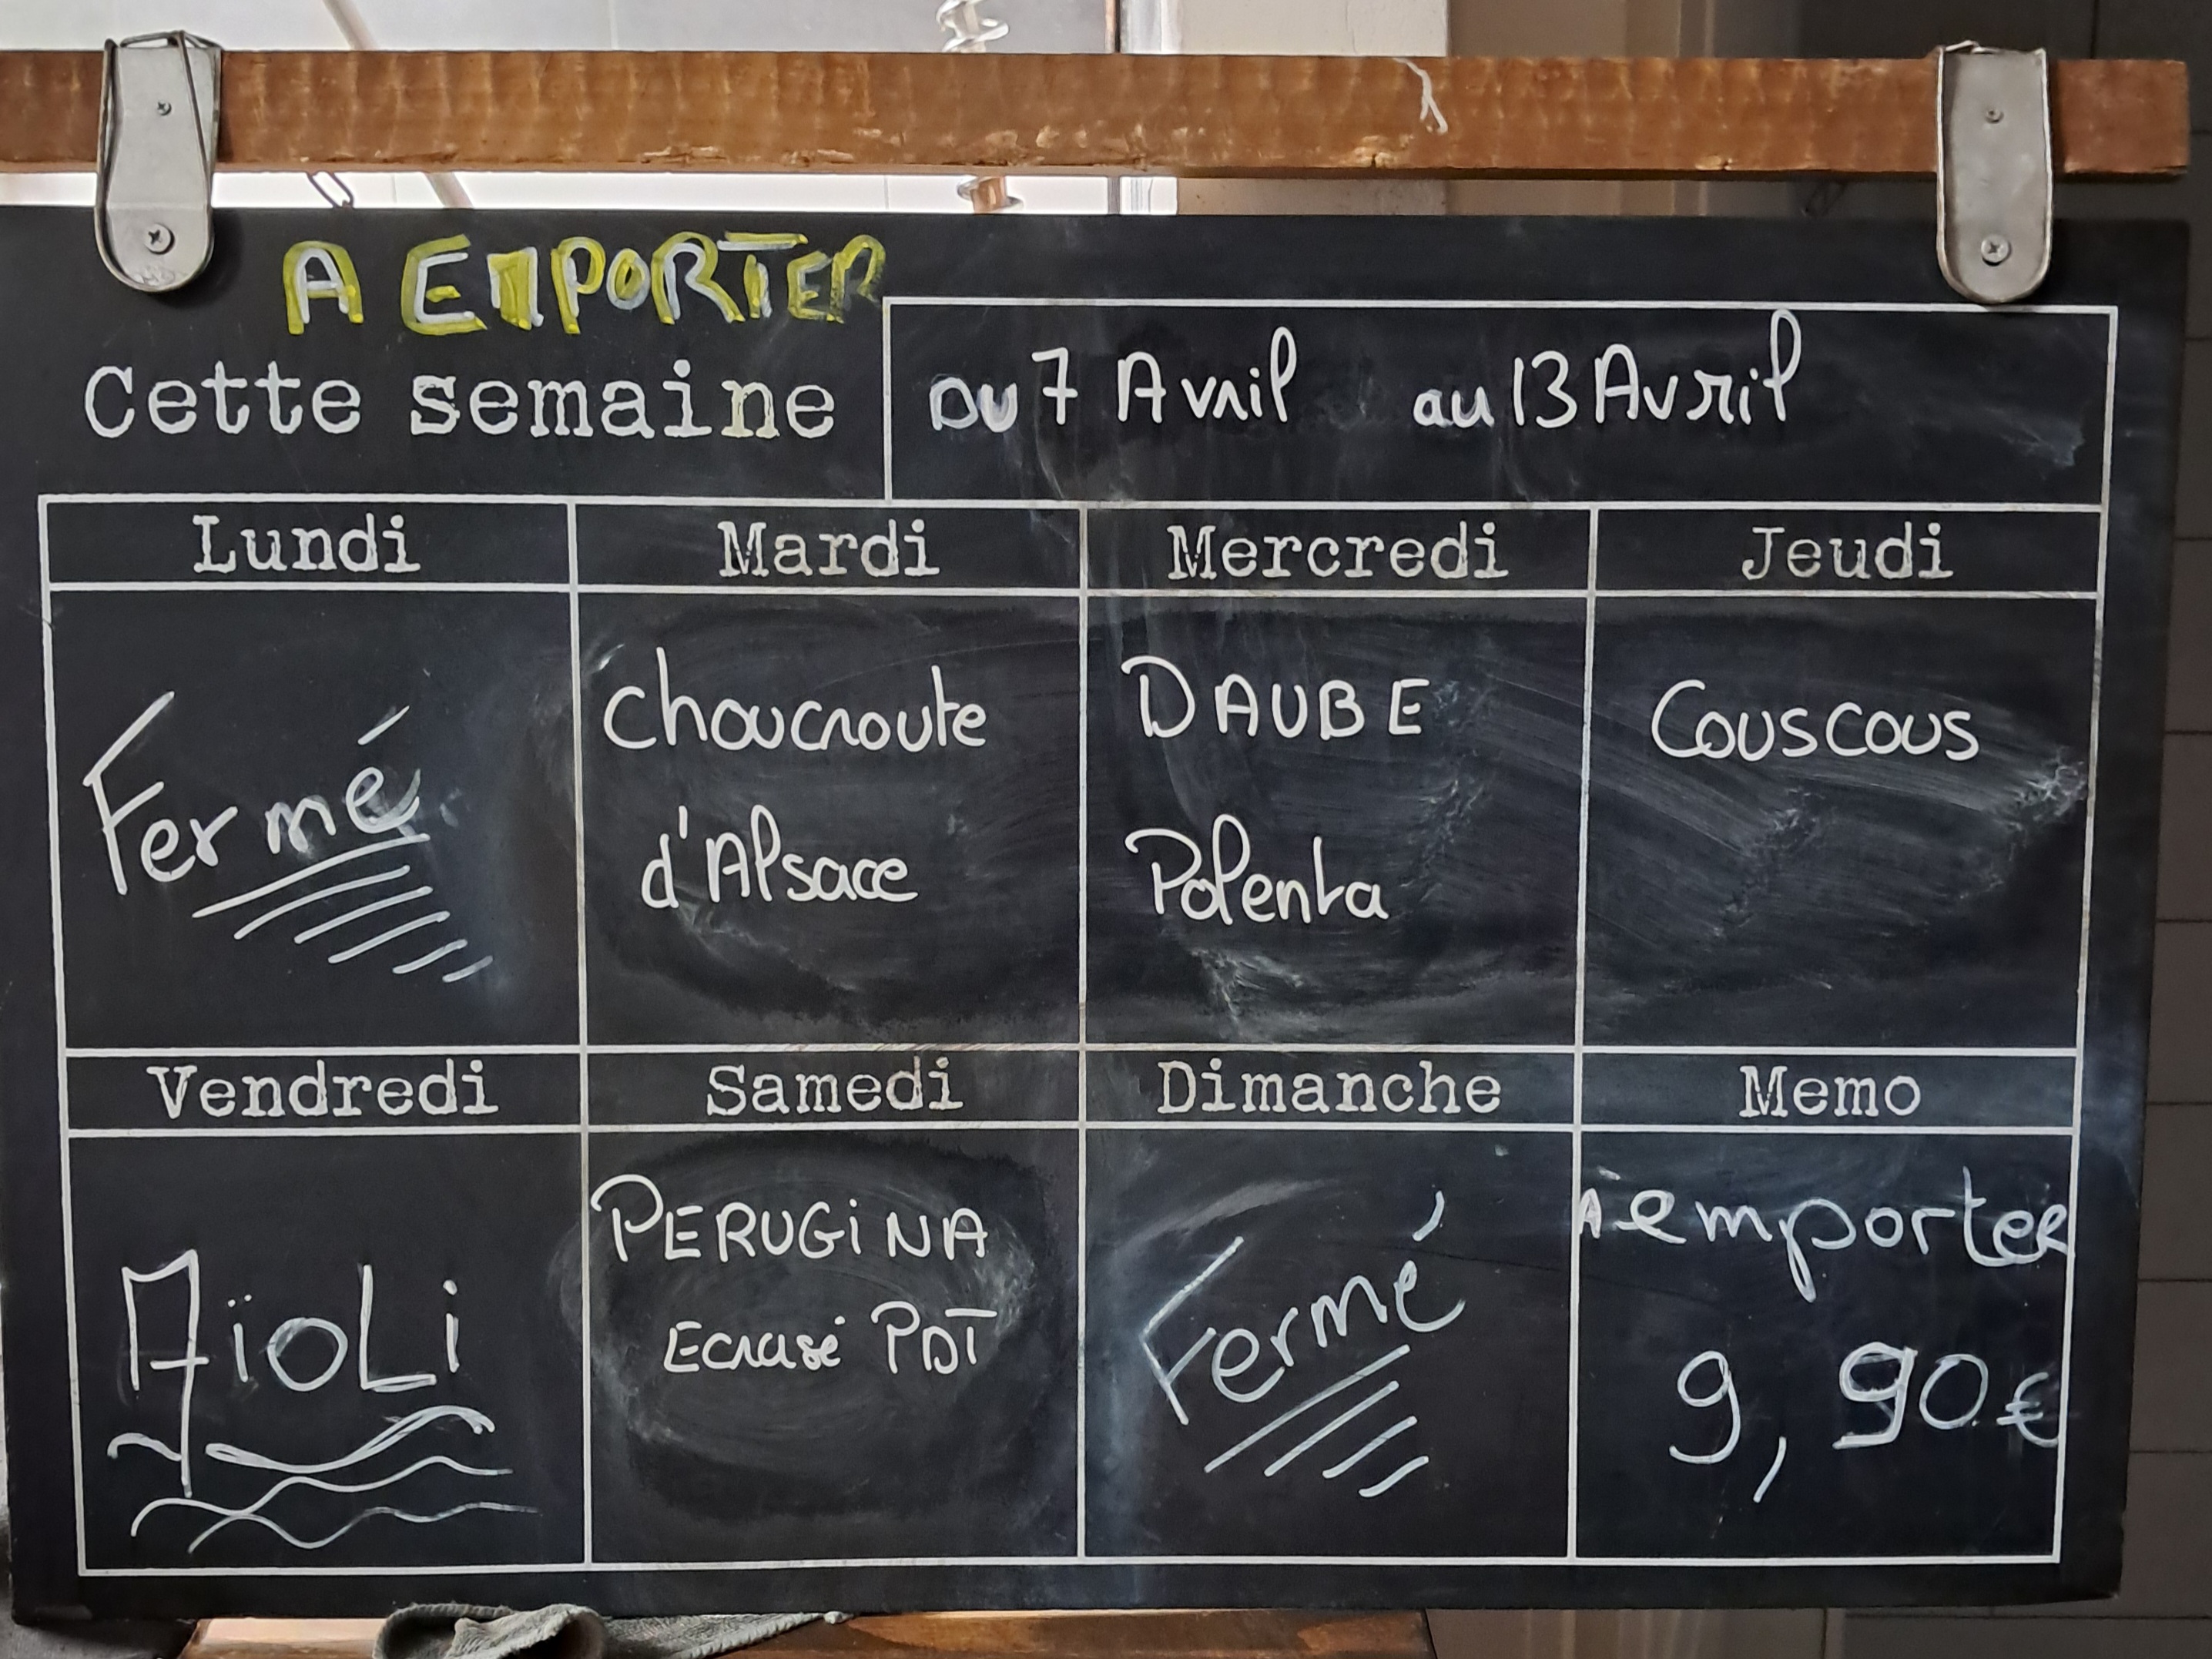 A EMPORTER
Cette semaine
Du 7 Avril au 13 Avril
Lundi
Mardi
Mercredi
Jeudi
Fermé
choucroute
d'Alsace
DAUBE
Polenta
Couscous
Vendredi
Samedi
Dimanche
Memo
AïoLi
PERUGiNA
Ecrasé PDT
Fermé
A emporter
9,90€